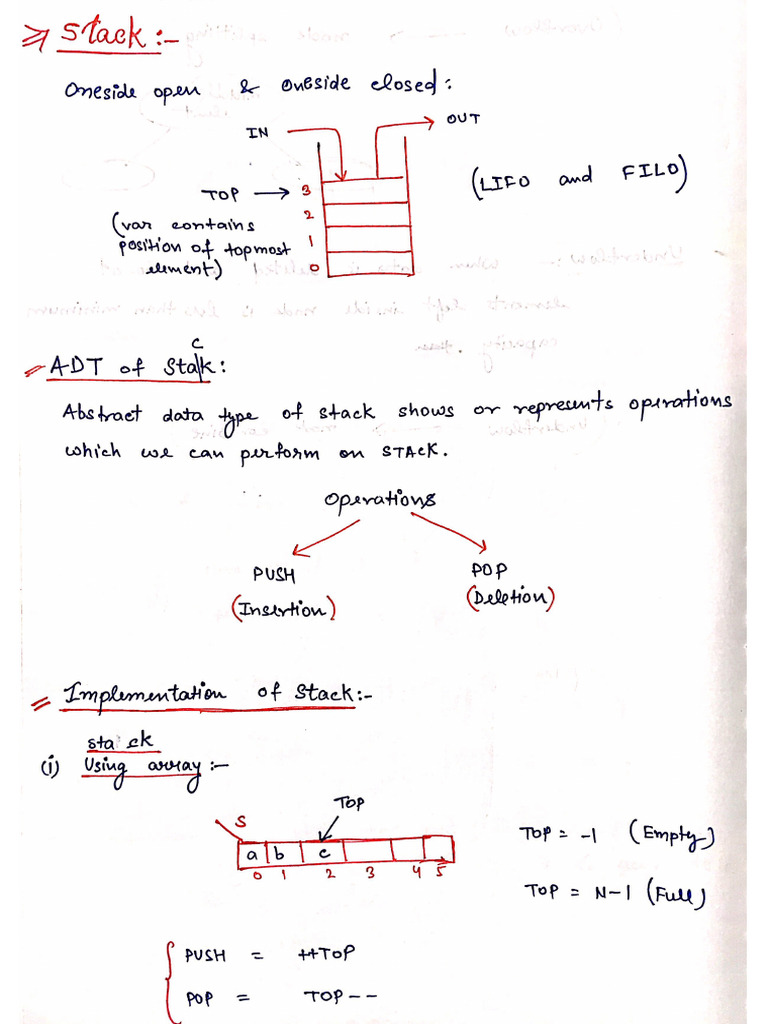 ⇒ Stack:-
Oneside open & oneside closed:
IN
OUT
TOP → 3
(LIFO and FILO)
2
(var contains
position of topmost
1
element)
0
= ADT of Stack:
Abstract data type of stack shows or represents operations
which we can perform on STACK.
Operations
PUSH
POP
(Insertion)
(Deletion)
= Implementation of Stack:-
stack
(i) Using array:-
TOP
S
a b c
0 1 2 3 4 5
TOP = -1 (Empty)
TOP = N-1 (Full)
PUSH = ++TOP
POP = TOP--